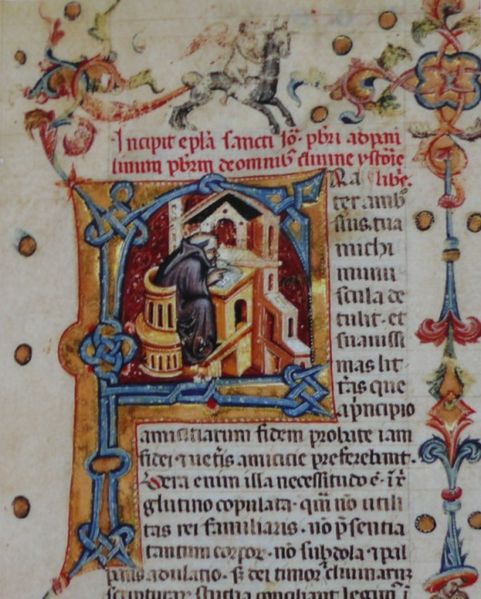 Incipit epla sancti Io. pbri ad pau
linum pbrm de omnib divine ystorie
libe.
Fra
ter amb
sius. tua
michi
munu
scula de
tulit. et
suavissi
mas lit
tras que
a pncipio
amicitiarum fidem probate iam
fidei et veteris amicicie preferebant.
Vera enim illa necessitudo e. i xr
glutino copulata. qui no utili
tas rei familiaris. no psentia
tantum corpor. no subdola et pal
pans adulatio. s dei timor et divinarum
scripturar studia conciliant. legim i